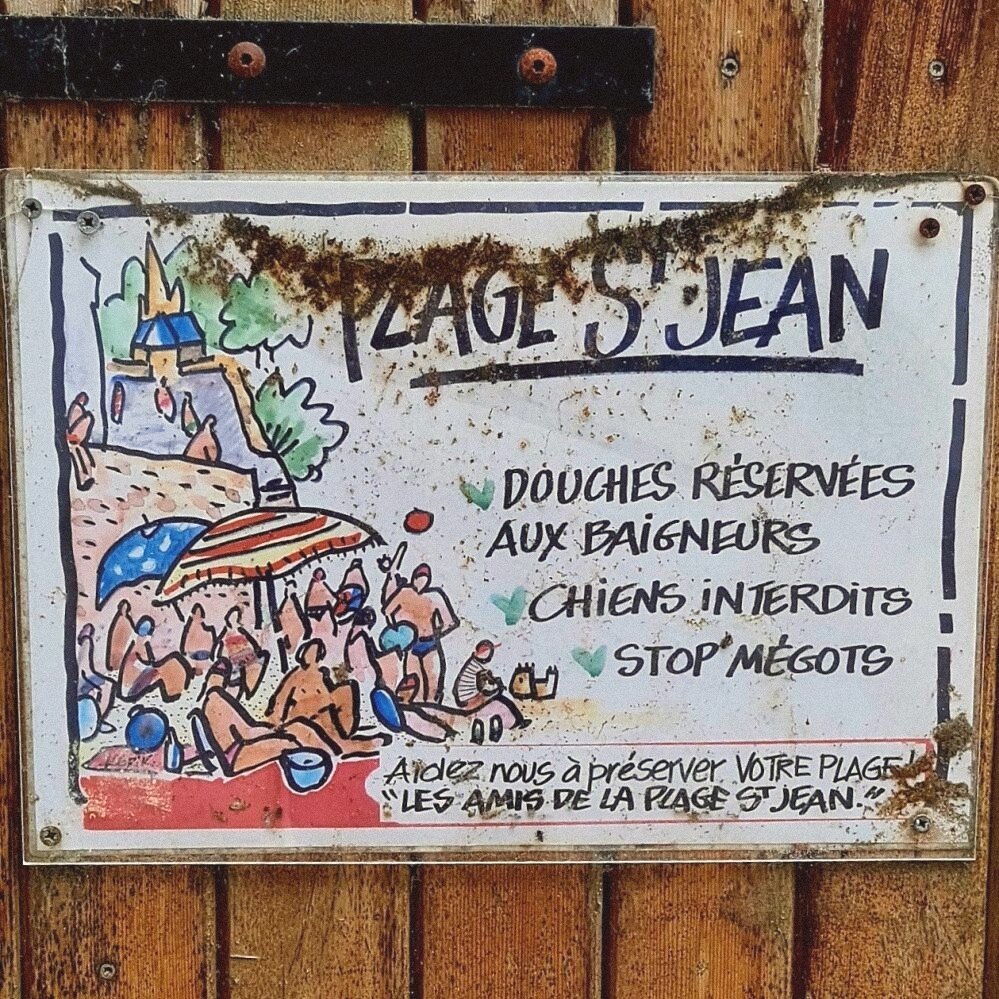 PLAGE St JEAN
DOUCHES RÉSERVÉES
AUX BAIGNEURS
CHIENS INTERDITS
STOP MÉGOTS
Aidez nous à préserver VOTRE PLAGE!
"LES AMIS DE LA PLAGE St JEAN."